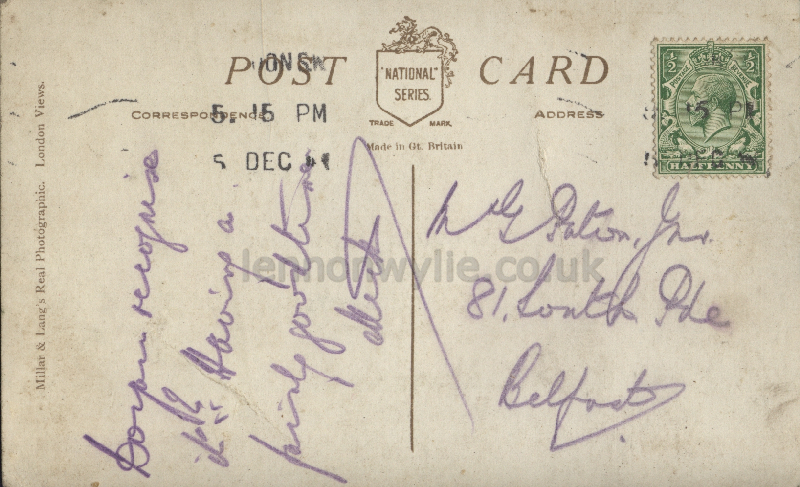 POST CARD
"NATIONAL"
SERIES.
TRADE MARK.
CORRESPONDENCE
ADDRESS
Made in Gt. Britain
5. 15 PM
5 DEC
½ ½
HALFPENNY
Millar & Lang's Real Photographic. London Views.
Do you recognise
it? Having a
fairly good time
Mr G Paton, Jnr.
81, South Pde
Belfast
lennonwylie.co.uk